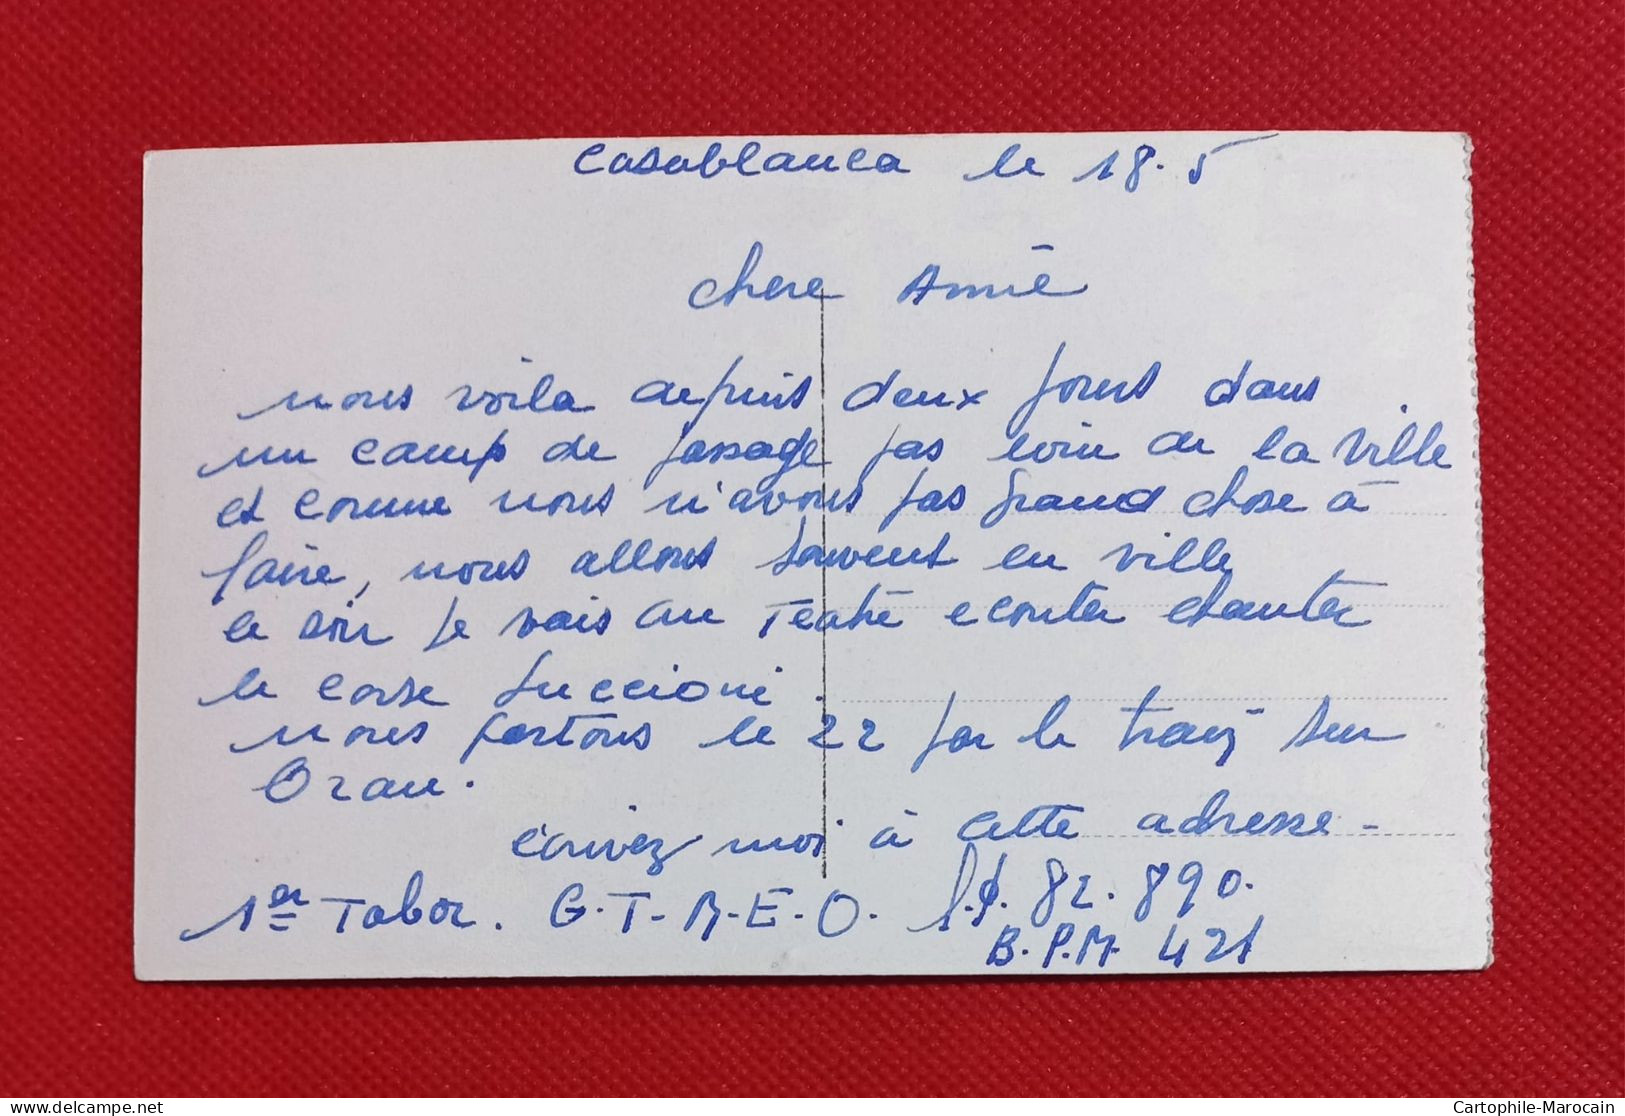 Casablanca le 18.5
Chere Annie
nous voila depuis deux jours dans
un camp de passage pas loin de la ville
et comme nous n'avons pas grand chose à
faire, nous allons souvent en ville
le soir je vais au Teatre ecouter chanter
le corse Luccioni.
nous partons le 22 par le train sur
Oran.
écrivez moi à cette adresse -
1er Tabor. G.T.M.E.O. S.P. 82.890.
B.P.M. 421
Cartophile-Marocain